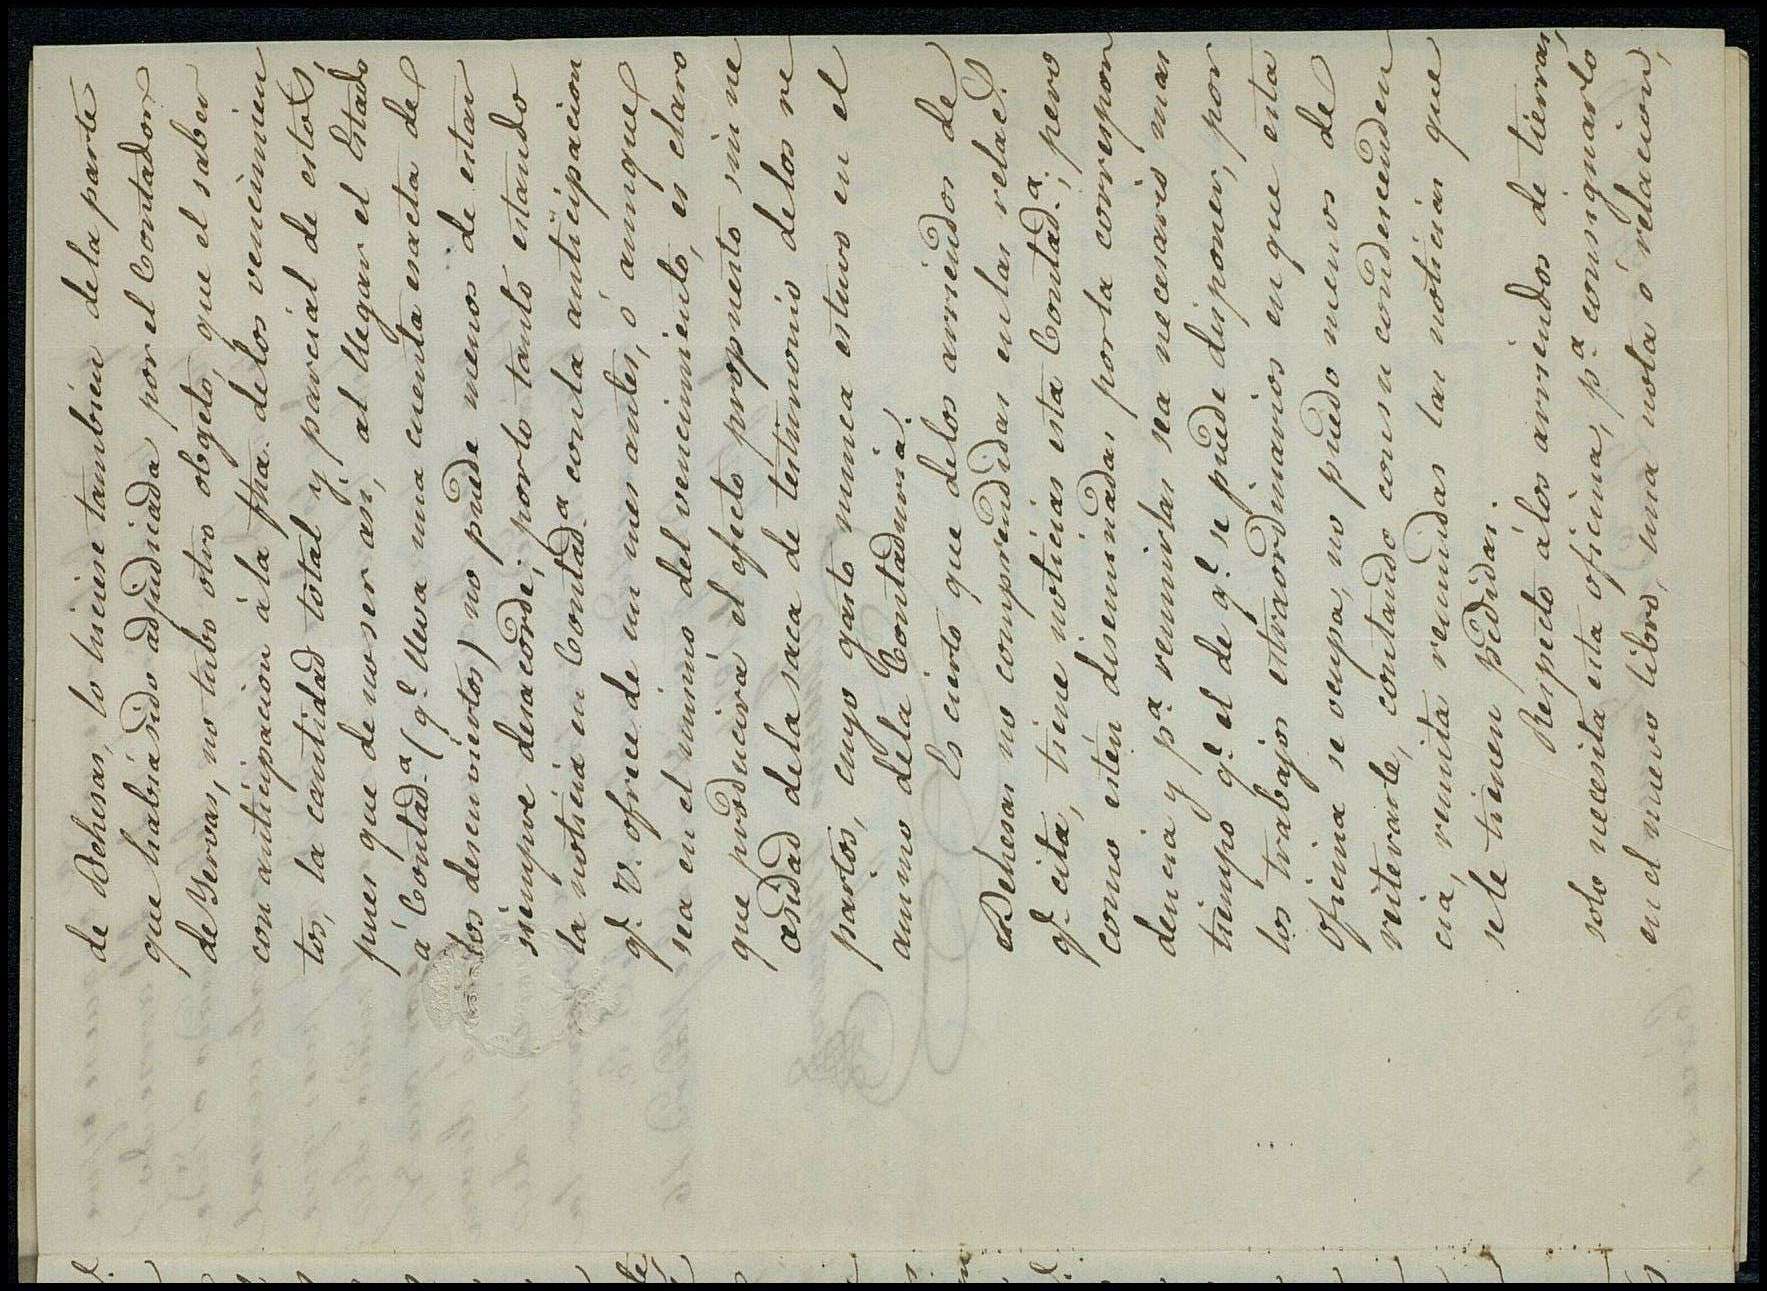 de Dehesas, lo hiciese tambien de la parte
que habiendo adjudicada por el Contador
de Yervas, no tubo otro objeto, que el saber
con anticipacion á la fha. de los vencimien
tos, la cantidad total y parcial de estos,
pues que de no ser asi, al llegar el Estado
á Contad.ª (q.e lleva una cuenta esacta de
los descuviertos) no puede menos de estar
siempre desacorde; por lo tanto estando
la noticia en Contad.ª con la anticipacion
q.e V. ofrece de un mes antes, ó aunque
sea en el mismo del vencimiento, es claro
que producirá el efecto propuesto sin ne
cesidad de la saca de testimonio de los re
partos, cuyo gasto nunca estuvo en el
animo de la Contaduria.
Es cierto que de los arriendos de
Dehesas no comprendidas en las relac.s
q.e cita, tiene noticias esta Contad.ª; pero
como estén diseminadas por la correspon
dencia y p.ª reunirlas sea necesario mas
tiempo q.e el de q.e se puede disponer, por
los trabajos extraordinarios en que esta
oficina se ocupa, no puedo menos de
reiterarle, contando con su condescenden
cia, remita reunidas las noticias que
se le tienen pedidas.
Respecto á los arriendos de tierras,
solo necesita esta oficina, p.ª consignarlo
en el nuevo libro, una nota ó relacion,